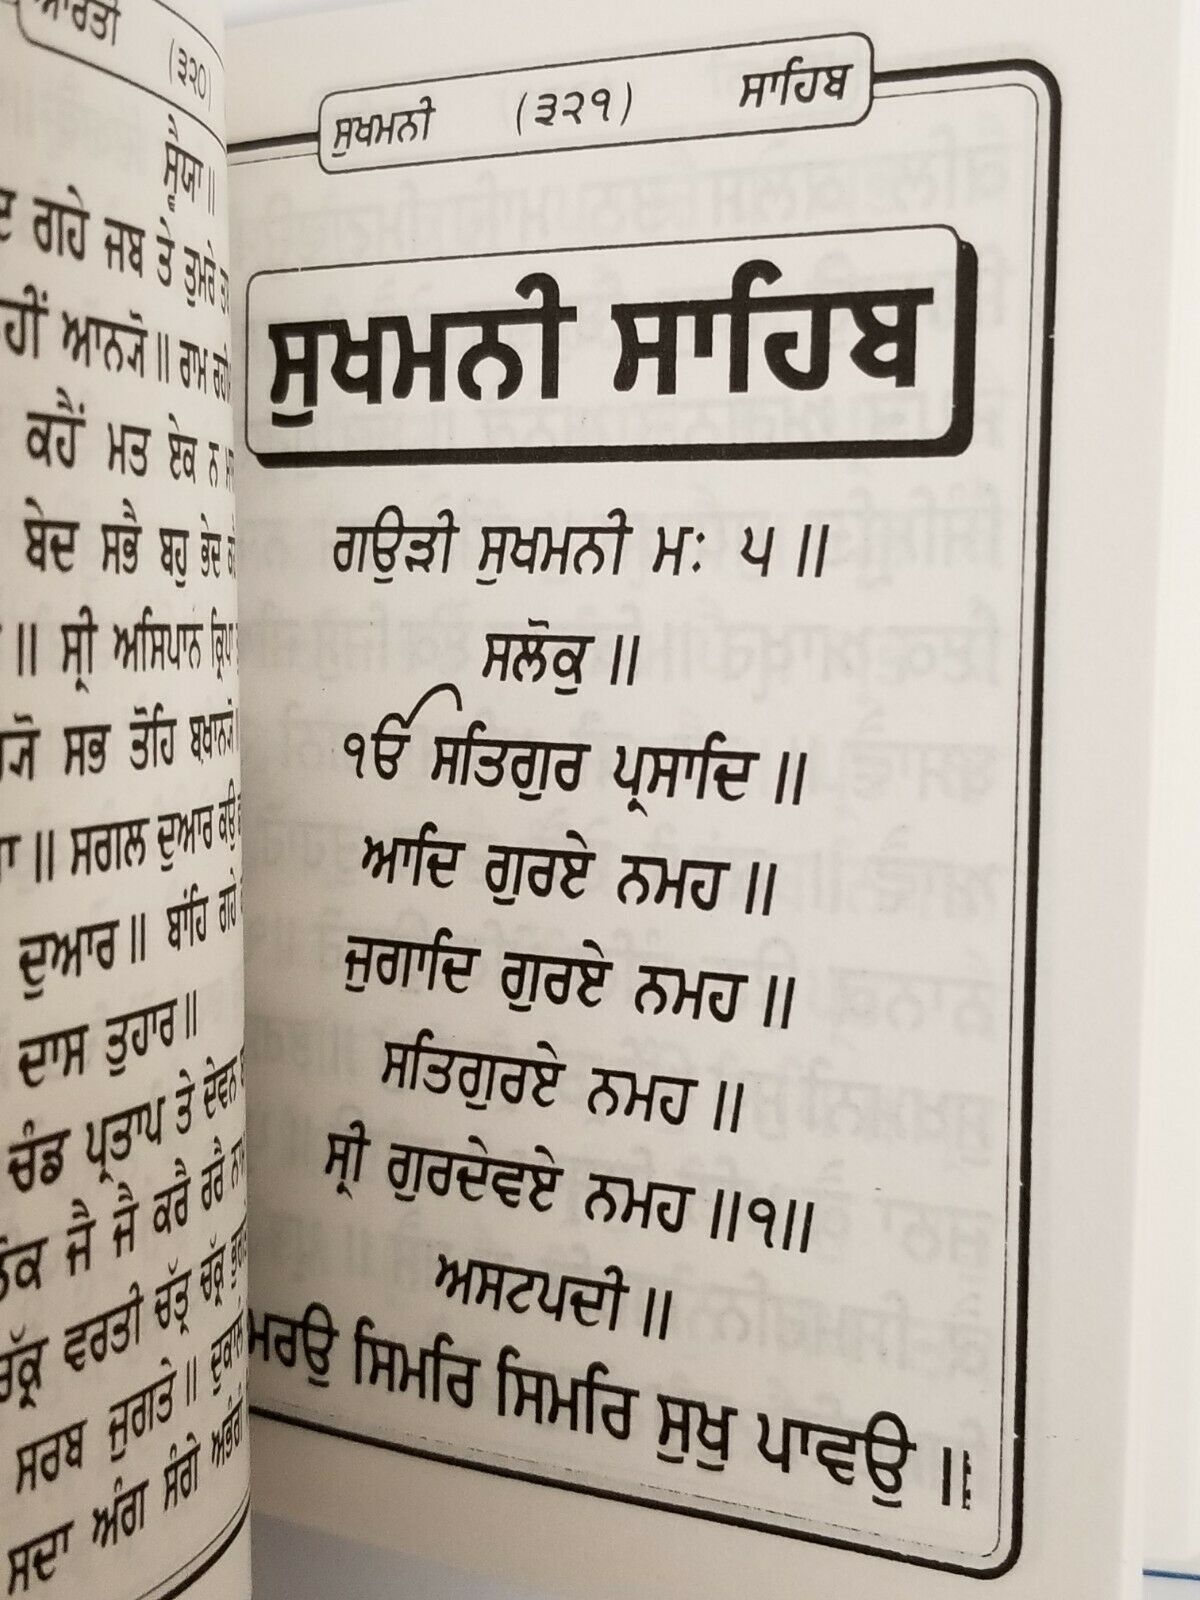 ਆਰਤੀ (੩੨੦)
ਸ੍ਵੈਯਾ॥
ਗਹੇ ਜਬ ਤੇ ਤੁਮਰੇ
ਆਨਯੋ॥ ਰਾਮ ਰਹੀ
ਕਹੈਂ ਮਤ ਏਕ ਨ
ਬੇਦ ਸਭੈ ਬਹੁ ਭੇਦ
॥ ਸ੍ਰੀ ਅਸਿਪਾਨ ਕ੍ਰਿਪਾ
ਸਭ ਤੋਹਿ ਬਖਾਨਯੋ॥
॥ ਸਗਲ ਦੁਆਰ ਕਉ
ਦੁਆਰ॥ ਬਾਂਹਿ ਗਹੇ
ਦਾਸ ਤੁਹਾਰ॥
ਚੰਡ ਪ੍ਰਤਾਪ ਤੇ ਦੇਵਨ
ਜੈ ਜੈ ਕਰੈ ਰਰੈ
ਵਰਤੀ ਚੱਤ੍ਰ ਚੱਕ੍ਰ
ਸਰਬ ਜੁਗਤੇ॥
ਸਦਾ ਅੰਗ ਸੰਗੇ ਅਭੰਗੰ
ਸੁਖਮਨੀ (੩੨੧) ਸਾਹਿਬ
ਸੁਖਮਨੀ ਸਾਹਿਬ
ਗਉੜੀ ਸੁਖਮਨੀ ਮਃ ੫॥
ਸਲੋਕੁ॥
ੴ ਸਤਿਗੁਰ ਪ੍ਰਸਾਦਿ॥
ਆਦਿ ਗੁਰਏ ਨਮਹ॥
ਜੁਗਾਦਿ ਗੁਰਏ ਨਮਹ॥
ਸਤਿਗੁਰਏ ਨਮਹ॥
ਸ੍ਰੀ ਗੁਰਦੇਵਏ ਨਮਹ॥੧॥
ਅਸਟਪਦੀ॥
ਮਰਉ ਸਿਮਰਿ ਸਿਮਰਿ ਸੁਖੁ ਪਾਵਉ॥